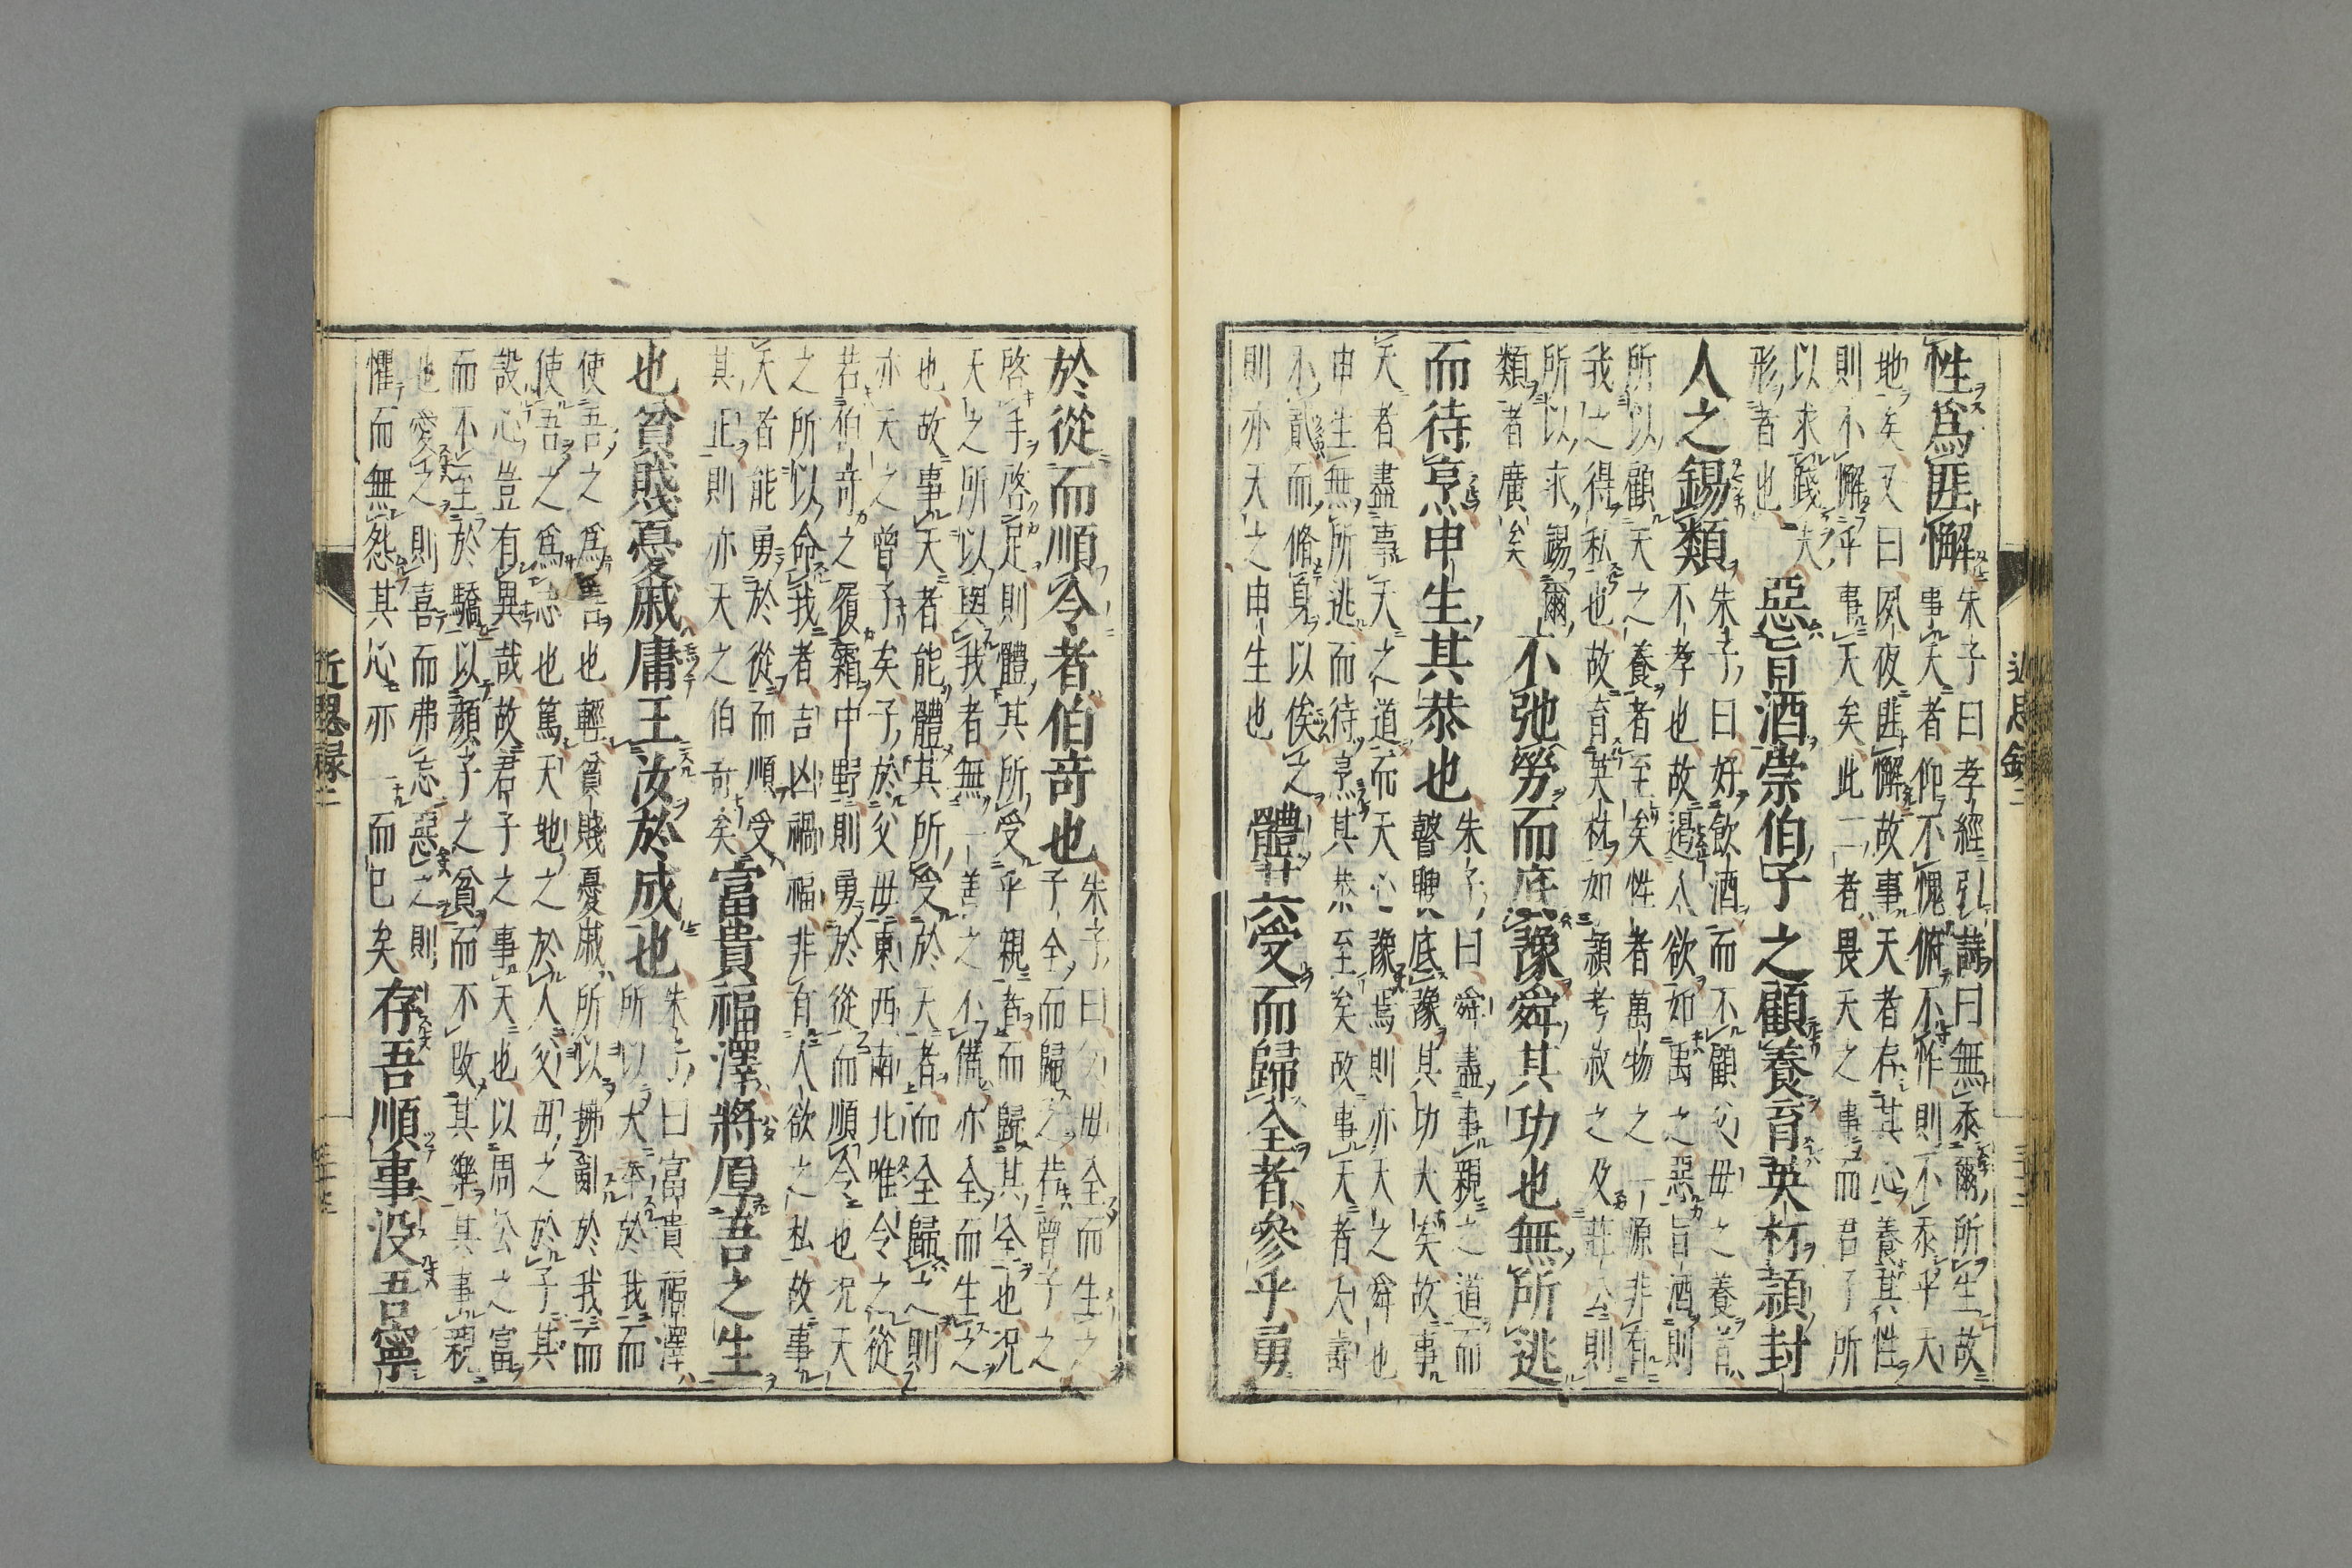 性爲匪懈
朱子曰孝經引詩曰無忝爾所生故
事天者仰不愧俯不怍則不忝乎天
地矣又曰夙夜匪懈故事天者存其心養其性
則不懈乎事天矣此二者畏天之事而君子所
以求踐夫
形者也
惡旨酒崇伯子之顧養育英材潁封
人之錫類
朱子曰好飲酒而不顧父母之養者
不孝也故遏人欲如禹之惡旨酒則
所以顧天之養者至矣性者萬物之一源非有
我之得私也故育英材如潁考叔之及莊公則
所以求錫爾
類者廣矣
不弛勞而底豫舜其功也無所逃
而待烹申生其恭也
朱子曰舜盡事親之道而
瞽瞍底豫其功大矣故事
天者盡事天之道而天心豫焉則亦天之舜也
申生無所逃而待烹其恭至矣故事天者夭壽
不貳而脩身以俟之
則亦天之申生也
體其受而歸全者參乎勇
於從而順令者伯奇也
朱子曰父母全而生之
子全而歸之若曾子之
啓手啓足則體其所受乎親者而歸其全也况
天之所以與我者無一善之不備亦全而生之
也故事天者能體其所受於天者而全歸之則
亦天之曾子矣子於父母東西南北唯令之從
若伯奇之履霜中野則勇於從而順令也况天
之所以命我者吉凶禍福非有人欲之私故事
天者能勇於從而順受
其正則亦天之伯奇矣
富貴福澤將厚吾之生
也貧賤憂戚庸王汝於成也
朱子曰富貴福澤
所以大奉於我而
使吾之爲善也輕貧賤憂戚所以拂亂於我而
使吾之爲志也篤天地之於人父母之於子其
設心豈有異哉故君子之事天也以周公之富
而不至於驕以顔子之貧而不改其樂其事親
也愛之則喜而弗忘惡之則
懼而無怨其心亦一而已矣
存吾順事没吾寧
近思録二